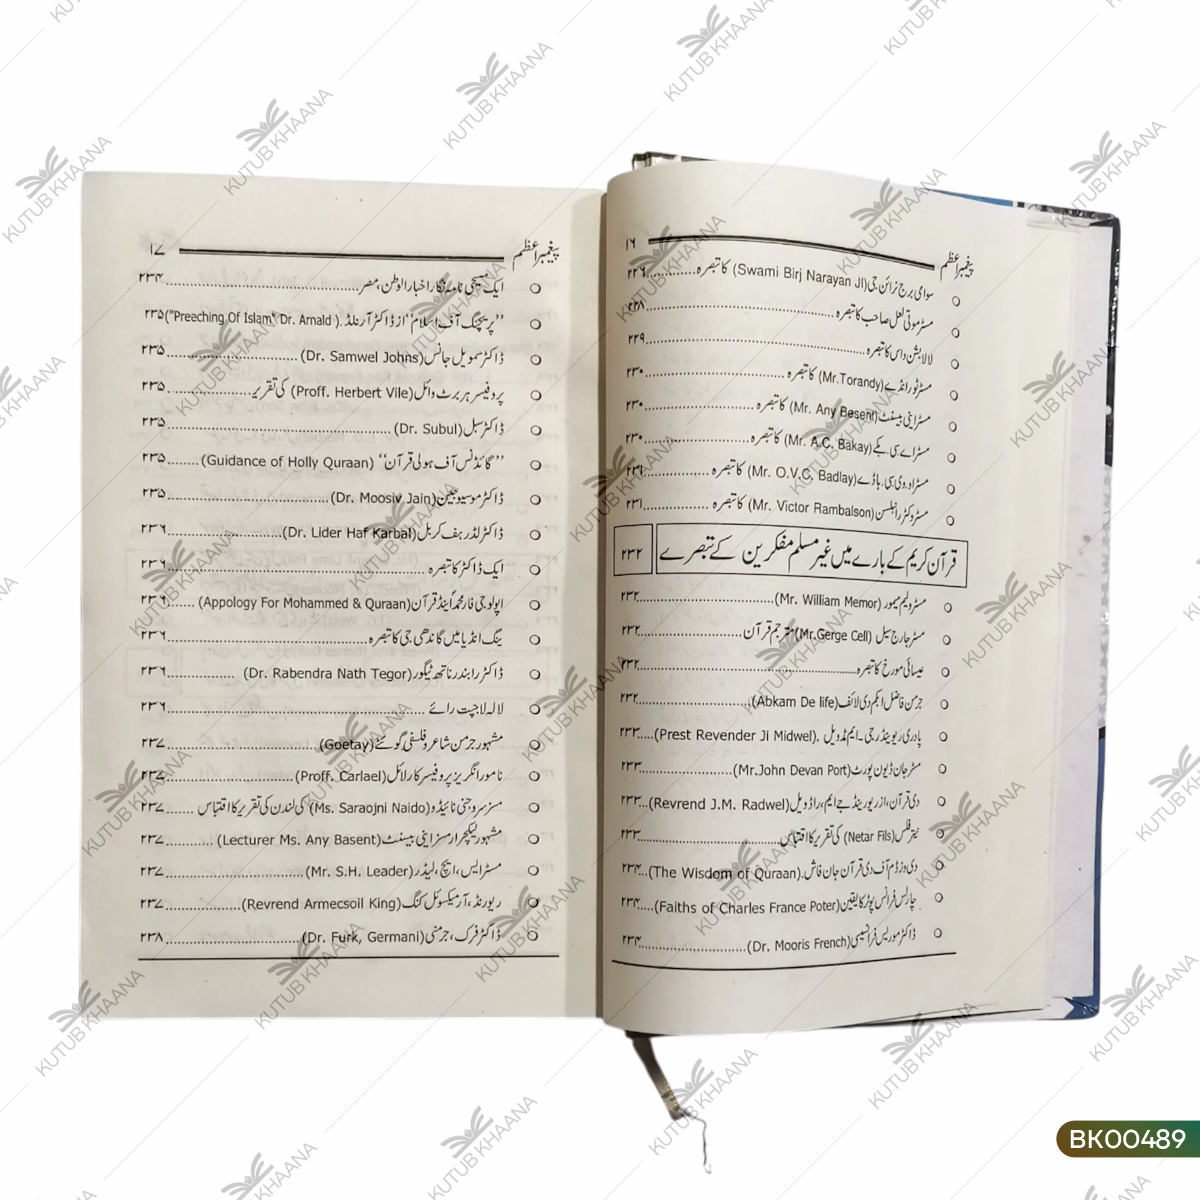 پیغمبر اعظم ۱۶
سوامی برج نرائن جی (Swami Birj Narayan JI) کا تبصرہ ۲۲٦
مسٹر موتی لعل صاحب کا تبصرہ ۲۲۸
لالا بشن داس کا تبصرہ ۲۲۹
مسٹر ٹورانڈے (Mr.Torandy) کا تبصرہ ۲۳۰
مسٹر اینی بیسنٹ (Mr. Any Besent) کا تبصرہ ۲۳۰
مسٹر اے سی بکے (Mr. A.C. Bakay) کا تبصرہ ۲۳۰
مسٹر او، وی سی، باڈے (Mr. O.V.C. Badlay) کا تبصرہ ۲۳۱
مسٹر وکٹر رامبلسن (Mr. Victor Rambalson) کا تبصرہ ۲۳۱
قرآن کریم کے بارے میں غیر مسلم مفکرین کے تبصرے ۲۳۲
مسٹر ولیم میمور (Mr. William Memor) ۲۳۲
مسٹر جارج سیل (Mr.Gerge Cell) مترجم قرآن ۲۳۲
عیسائی مورخ کا تبصرہ ۲۳۲
جرمن فاضل ایکم دی لائف (Abkam De life) ۲۳۲
پادری ریونیڈر جی۔ ایم مڈویل. (Prest Revender Ji Midwel) ۲۳۳
مسٹر جان ڈیون پورٹ (Mr.John Devan Port) ۲۳۳
دی قرآن، از ریورینڈ جے ایم، راڈویل (Revrend J.M. Radwel) ۲۳۳
نیتر فلس (Netar Fils) کی تقریر کا اقتباس ۲۳۳
دی وزڈم آف دی قرآن جان فاش. (The Wisdom of Quraan) ۲۳۴
چارلس فرانس پوٹر کا یقین (Faiths of Charles France Poter) ۲۳۴
ڈاکٹر موریس فرانسیسی (Dr. Mooris French) ۲۳۴
پیغمبر اعظم ۱۷
ایک مسیحی نامہ نگار اخبار الوطن، مصر ۲۳۴
”پریچنگ آف اسلام“ از ڈاکٹر آرنلڈ. ("Preeching Of Islam" Dr. Arnald) ۲۳۵
ڈاکٹر سمویل جانس (Dr. Samwel Johns) ۲۳۵
پروفیسر ہربرٹ وائل (Proff. Herbert Vile) کی تقریر ۲۳۵
ڈاکٹر سبل (Dr. Subul) ۲۳۵
”گائڈنس آف ہولی قرآن“ (Guidance of Holly Quraan) ۲۳۵
ڈاکٹر موسیوجین (Dr. Moosiv Jain) ۲۳۵
ڈاکٹر لڈر ہف کربل (Dr. Lider Haf Karbal) ۲۳٦
ایک ڈاکٹر کا تبصرہ ۲۳٦
اپولوجی فار محمد اینڈ قرآن (Appology For Mohammed & Quraan) ۲۳٦
ینگ انڈیا میں گاندھی جی کا تبصرہ ۲۳٦
ڈاکٹر رابندر ناتھ ٹیگور (Dr. Rabendra Nath Tegor) ۲۳٦
لالہ لاجپت رائے ۲۳٦
مشہور جرمن شاعر و فلسفی گوئٹے (Goetay) ۲۳۷
نامور انگریز پروفیسر کارلائل (Proff. Carlael) ۲۳۷
مسز سروجنی نائیڈو (Ms. Saraojni Naido) کی لندن کی تقریر کا اقتباس ۲۳۷
مشہور لیکچرار مسز اینی بیسنٹ (Lecturer Ms. Any Basent) ۲۳۷
مسٹر ایس، ایچ، لیڈر (Mr. S.H. Leader) ۲۳۷
ریورنڈ، آر میکسوئل کنگ (Revrend Armecsoil King) ۲۳۷
ڈاکٹر فرک، جرمنی (Dr. Furk, Germani) ۲۳۸
KUTUB KHAANA
BK00489